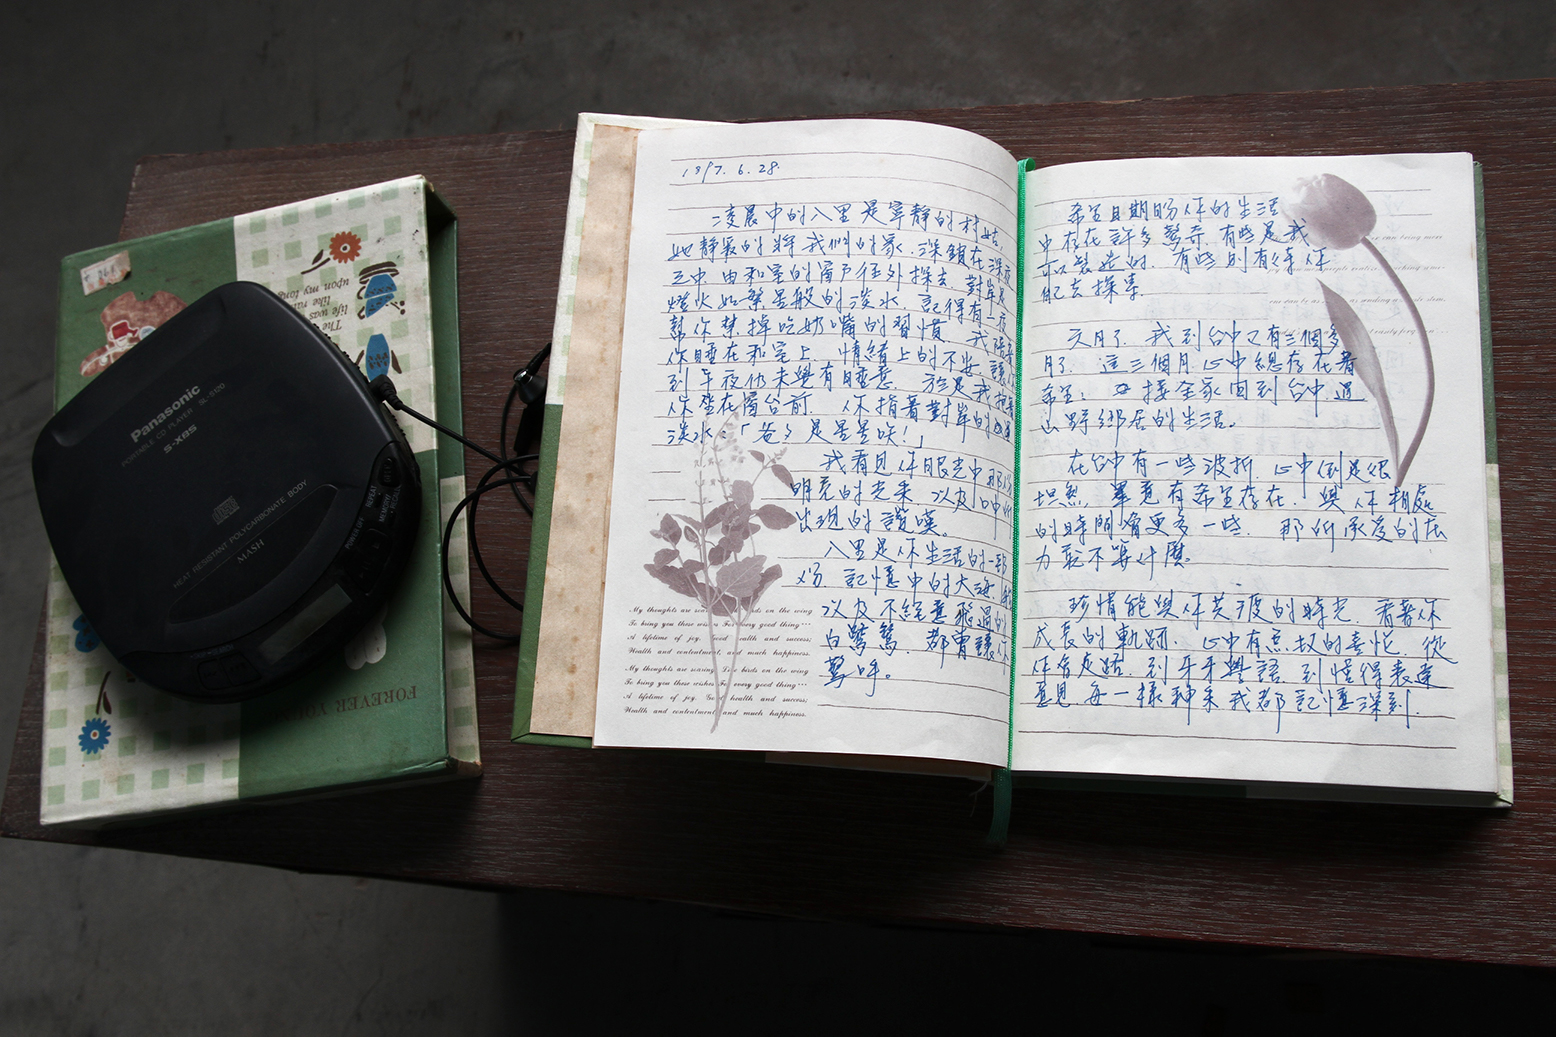 Panasonic
PORTABLE CD PLAYER SL-S120
S-XBS
HEAT RESISTANT POLYCARBONATE BODY
MASH
FOREVER YOU
The
life was
like rain
upon my long
1897. 6. 28.
凌晨中的八里是寧靜的村姑.
她靜寂的將我們的家.深鎖在深夜
之中.由和室的窗戶往外探去.對岸是
燈火如繁星般的淡水.記得有一夜
幫你禁掉吃奶嘴的習慣.我陪著
你睡在和室上.情緒上的不安.讓你
到午夜仍未覺有睡意.於是我抱著
你坐在窗台前.你指著對岸的
淡水:「爸爸是星星唉!」
我看見你眼光中那
明亮的光采.以及口中所
出現的讚嘆。
八里是你生活的一部
份.記憶中的大海.
以及不經意飛過的
白鷺鷥.都曾讓你
驚呼。
My thoughts are soaring birds on the wing
To bring you these wishes For every good thing···
A lifetime of joy. Good health and success;
Wealth and contentment, and much happiness.
My thoughts are soaring Like birds on the wing
To bring you these wishes For every good thing···
A lifetime of joy. Good health and success;
Wealth and contentment, and much happiness.
希望且期盼你的生活
中存在許多驚奇.有些是我
所製造的.有些則有待你
自己去探尋.
六月了.我到台中又有三個多
月了.這三個月.心中總存在著
希望:迎接全家回到台中.過
山野鄉居的生活。
在台中有一些波折.心中倒是很
坦然.畢竟有希望存在.與你相處
的時間會更多一些.那所承受的壓
力就不算什麼.
珍惜能與你共渡的時光.看著你
成長的軌跡.心中有点奴的喜悅.從
你會爬.到牙牙學語.到懂得表達
意見.每一樣種來我都記憶深刻.